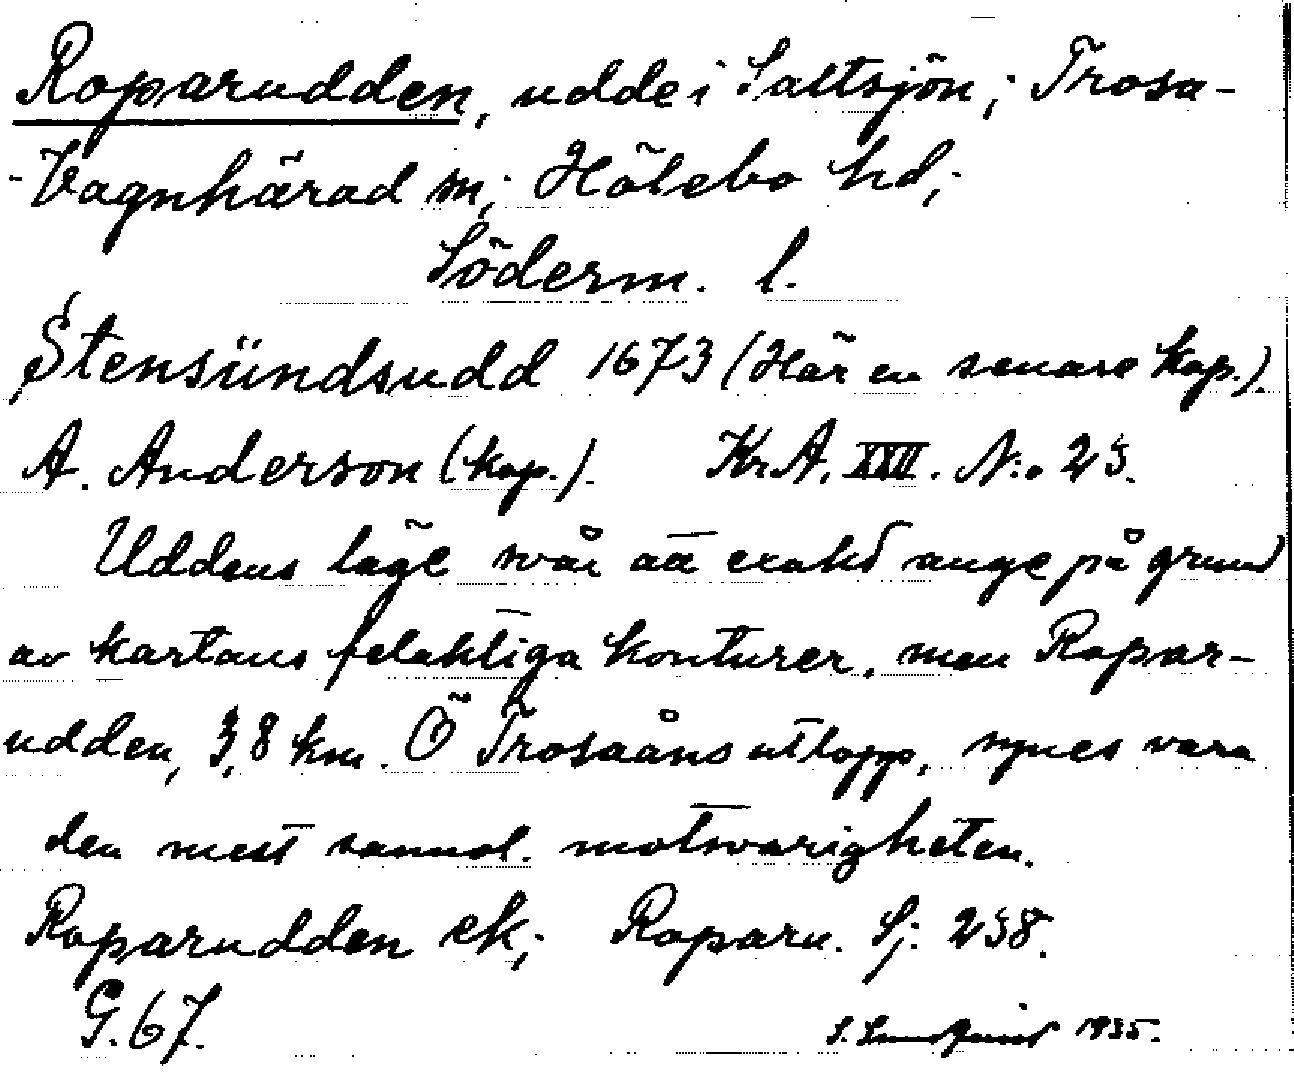 Roparudden, udde i Saltsjön; Trosa-
-Vagnhärad sn; Hölebo hd;
Söderm. l.
Stensündsudd 1673 (Här en senare kop.).
A. Anderson (kop.). Kr.A. XXII. N:o 25.
Uddens läge svår att exakt ange på grund
av kartans felaktiga konturer, men Ropar-
udden, 3,8 km. Ö Trosaåns utlopp, synes vara
den mest sannol. motsvarigheten.
Roparudden ek; Roparu. Sj: 238.
G.67.
S. Lundqvist 1935.